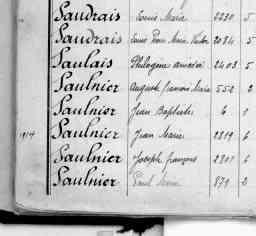 Saudrais Louis Marie 2230 5
Saudrais Louis Marie Victor 2084 5
Saulais Philogène 2403 5
Saulnier Auguste François Marie 552 2
Saulnier Jean Baptiste 6 1
1914 Saulnier Jean Marie 2819 6
Saulnier Joseph François 2801 6
Saulnier Paul Marie 879 2